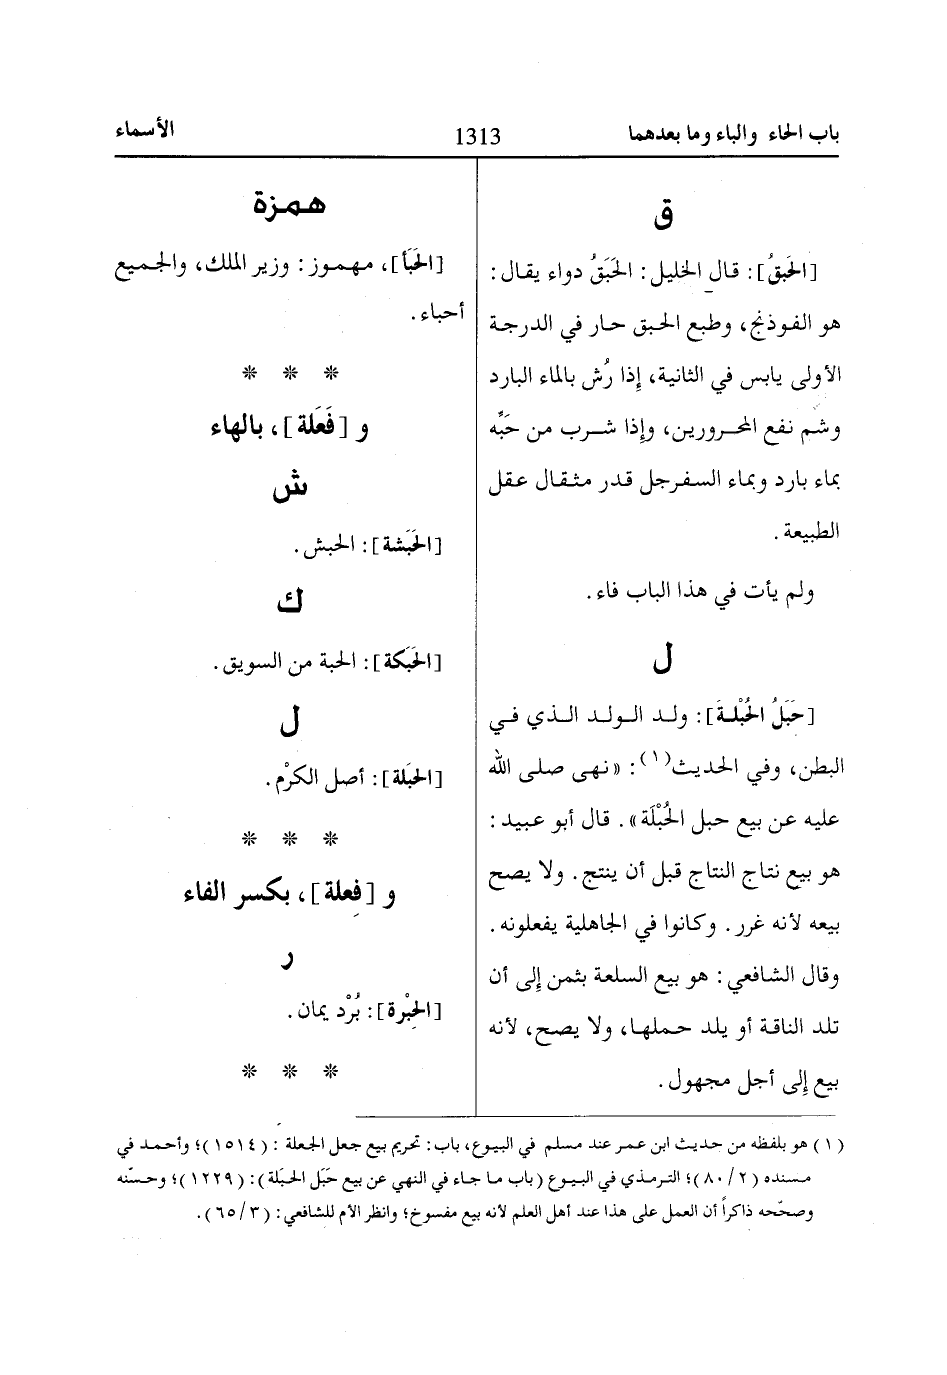 باب الحاء والباء وما بعدهما
1313
الأسماء
ق
[الحَبَقُ]: قال الخليل: الحَبَقُ دواء يقال:
هو الفوذنج، وطبع الحبق حار في الدرجة
الأولى يابس في الثانية، إِذا رُش بالماء البارد
وشم نفع المحرورين، وإِذا شرب من حَبِّه
بماء بارد وبماء السفرجل قدر مثقال عقل
الطبيعة.
ولم يأت في هذا الباب فاء.
ل
[حَبَلُ الحُبْلة]: ولد الولد الذي في
البطن، وفي الحديث(١): «نهى صلى الله
عليه عن بيع حبل الحُبْلَة». قال أبو عبيد:
هو بيع نتاج النتاج قبل أن ينتج. ولا يصح
بيعه لأنه غرر. وكانوا في الجاهلية يفعلونه.
وقال الشافعي: هو بيع السلعة بثمن إِلى أن
تلد الناقة أو يلد حملها، ولا يصح، لأنه
بيع إِلى أجل مجهول.
همزة
[الحَبَأ]، مهموز: وزير الملك، والجميع
أحباء.
* * *
و [فَعَلة]، بالهاء
ش
[الحَبَشة]: الحبش.
ك
[الحَبَكة]: الحبة من السويق.
ل
[الحَبَلة]: أصل الكرْم.
* * *
و [فِعلة]، بكسر الفاء
ر
[الحِبْرة]: بُرْد يمان.
* * *
(١) هو بلفظه من حديث ابن عمر عند مسلم في البيوع، باب: تحريم بيع جعل الجعلة: (١٥١٤)؛ وأحمد في
مسنده (٨٠/٢)؛ الترمذي في البيوع (باب ما جاء في النهي عن بيع حَبَل الحبَلة): (١٢٢٩)؛ وحسّنه
وصحّحه ذاكراً أن العمل على هذا عند أهل العلم لأنه بيع مفسوخ؛ وانظر الأم للشافعي: (٦٥/٣).